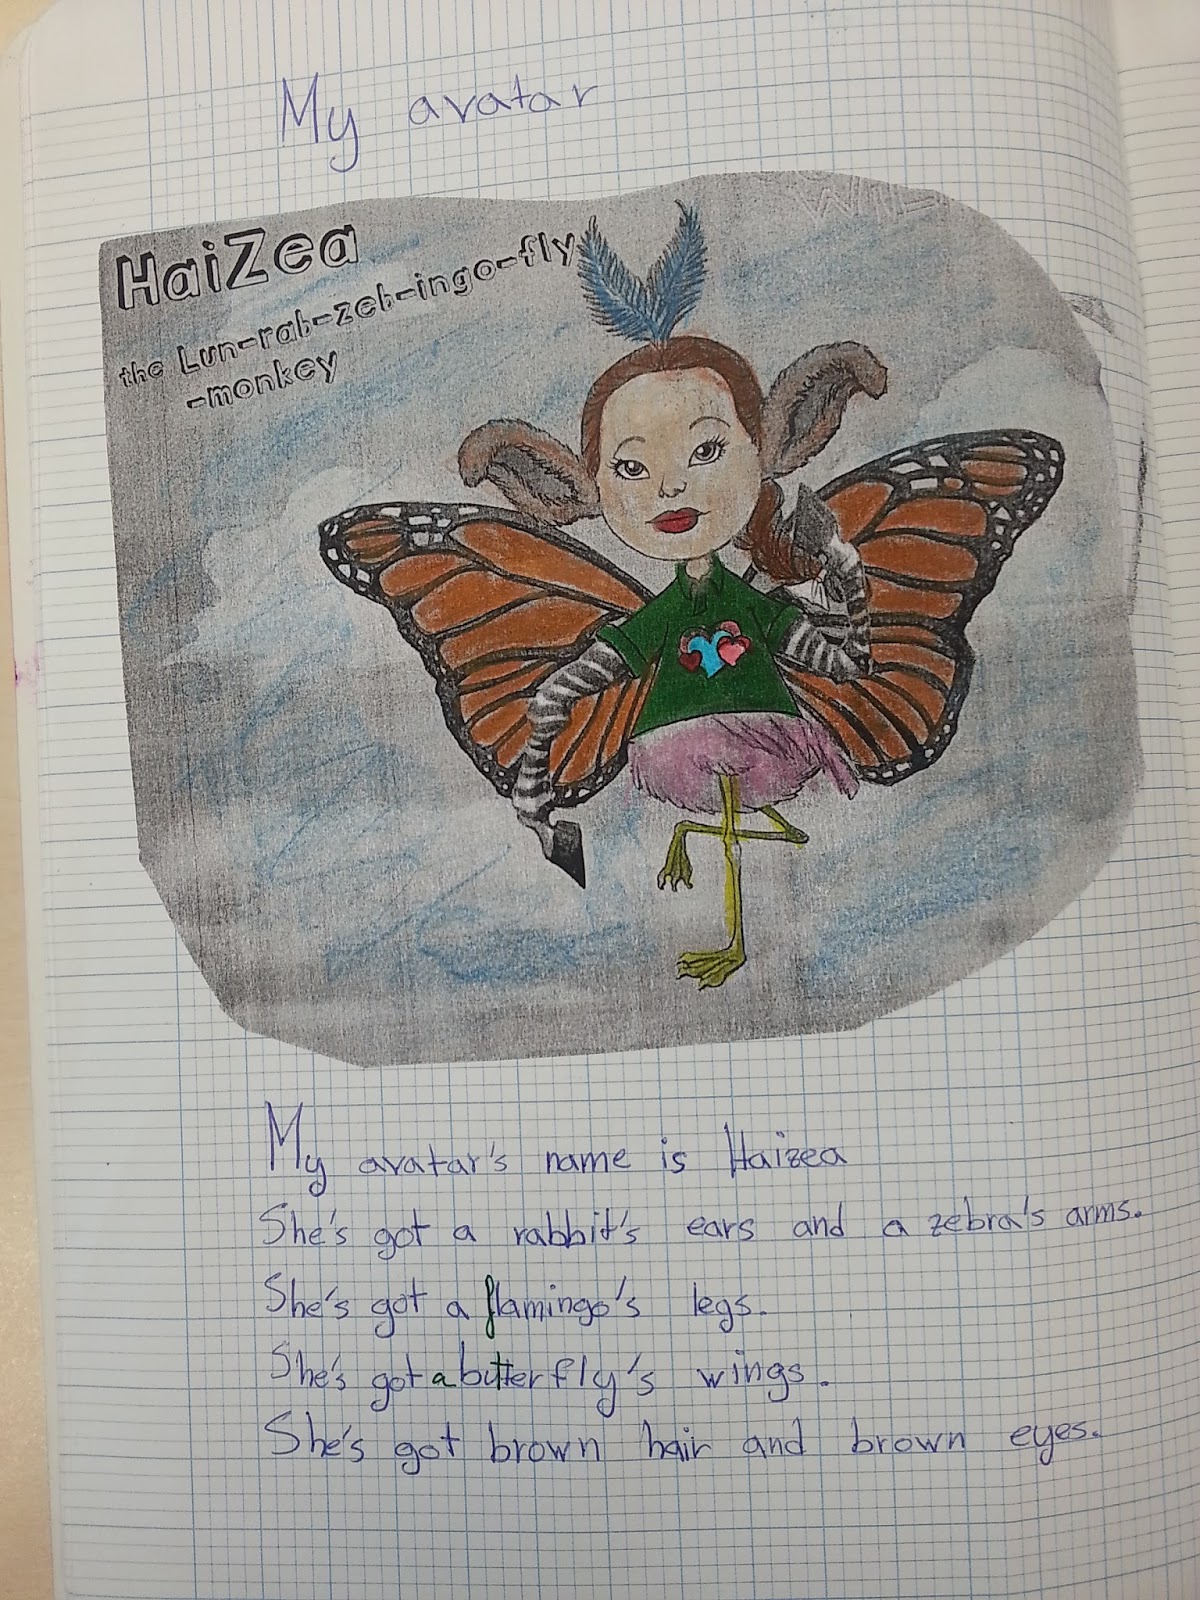 My avatar
HaiZea
the Lun-rab-zeb-ingo-fly
-monkey
My avatar's name is Haizea
She's got a rabbit's ears and a zebra's arms.
She's got a flamingo's legs.
She's got a butterfly's wings.
She's got brown hair and brown eyes.